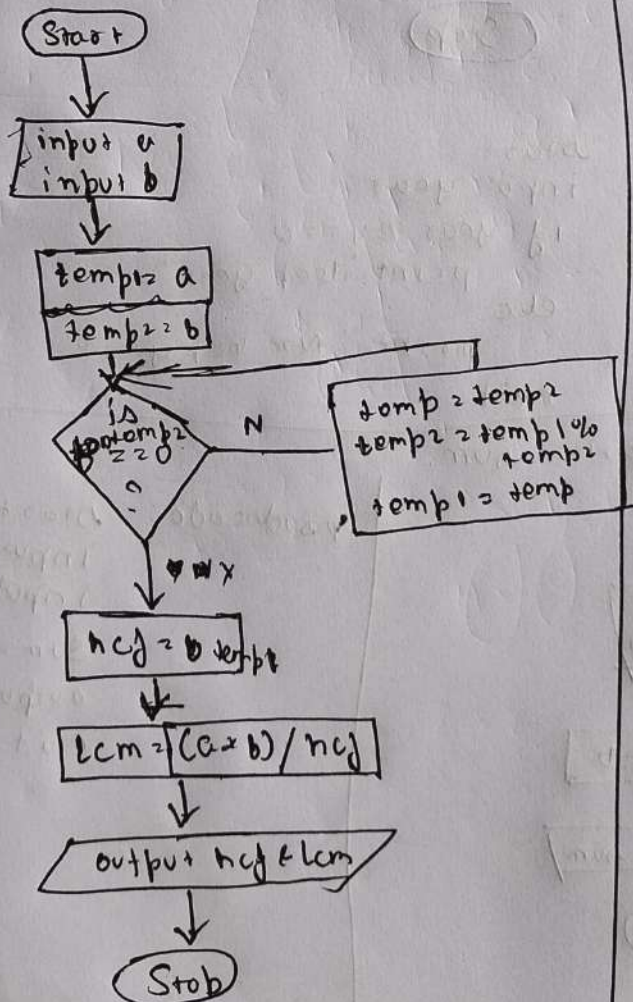 Start
input a
input b
temp1 = a
temp2 = b
is
temp2
== 0
?
N
temp = temp2
temp2 = temp1 %
temp2
temp1 = temp
Y
hcf = temp1
Lcm = (a * b) / hcf
output hcf & Lcm
Stop